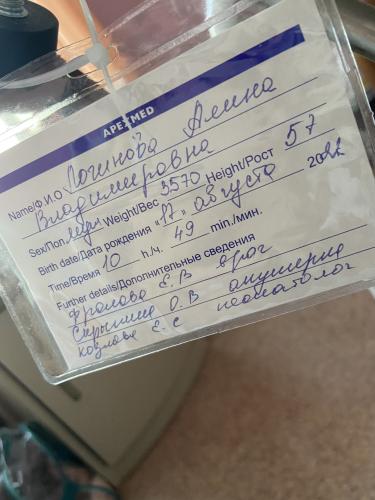 APEXMED
Name/Ф.И.О Логинова Алина
Владимировна
Sex/Пол Weight/Вес 3570 Height/Рост 57
Birth date/Дата рождения "17" августа 20
Time/Время 10 h/ч. 49 min./мин.
Further details/Дополнительные сведения
Фролова Е.В врач
О.В акушерка
Козлова Е.С неонатолог